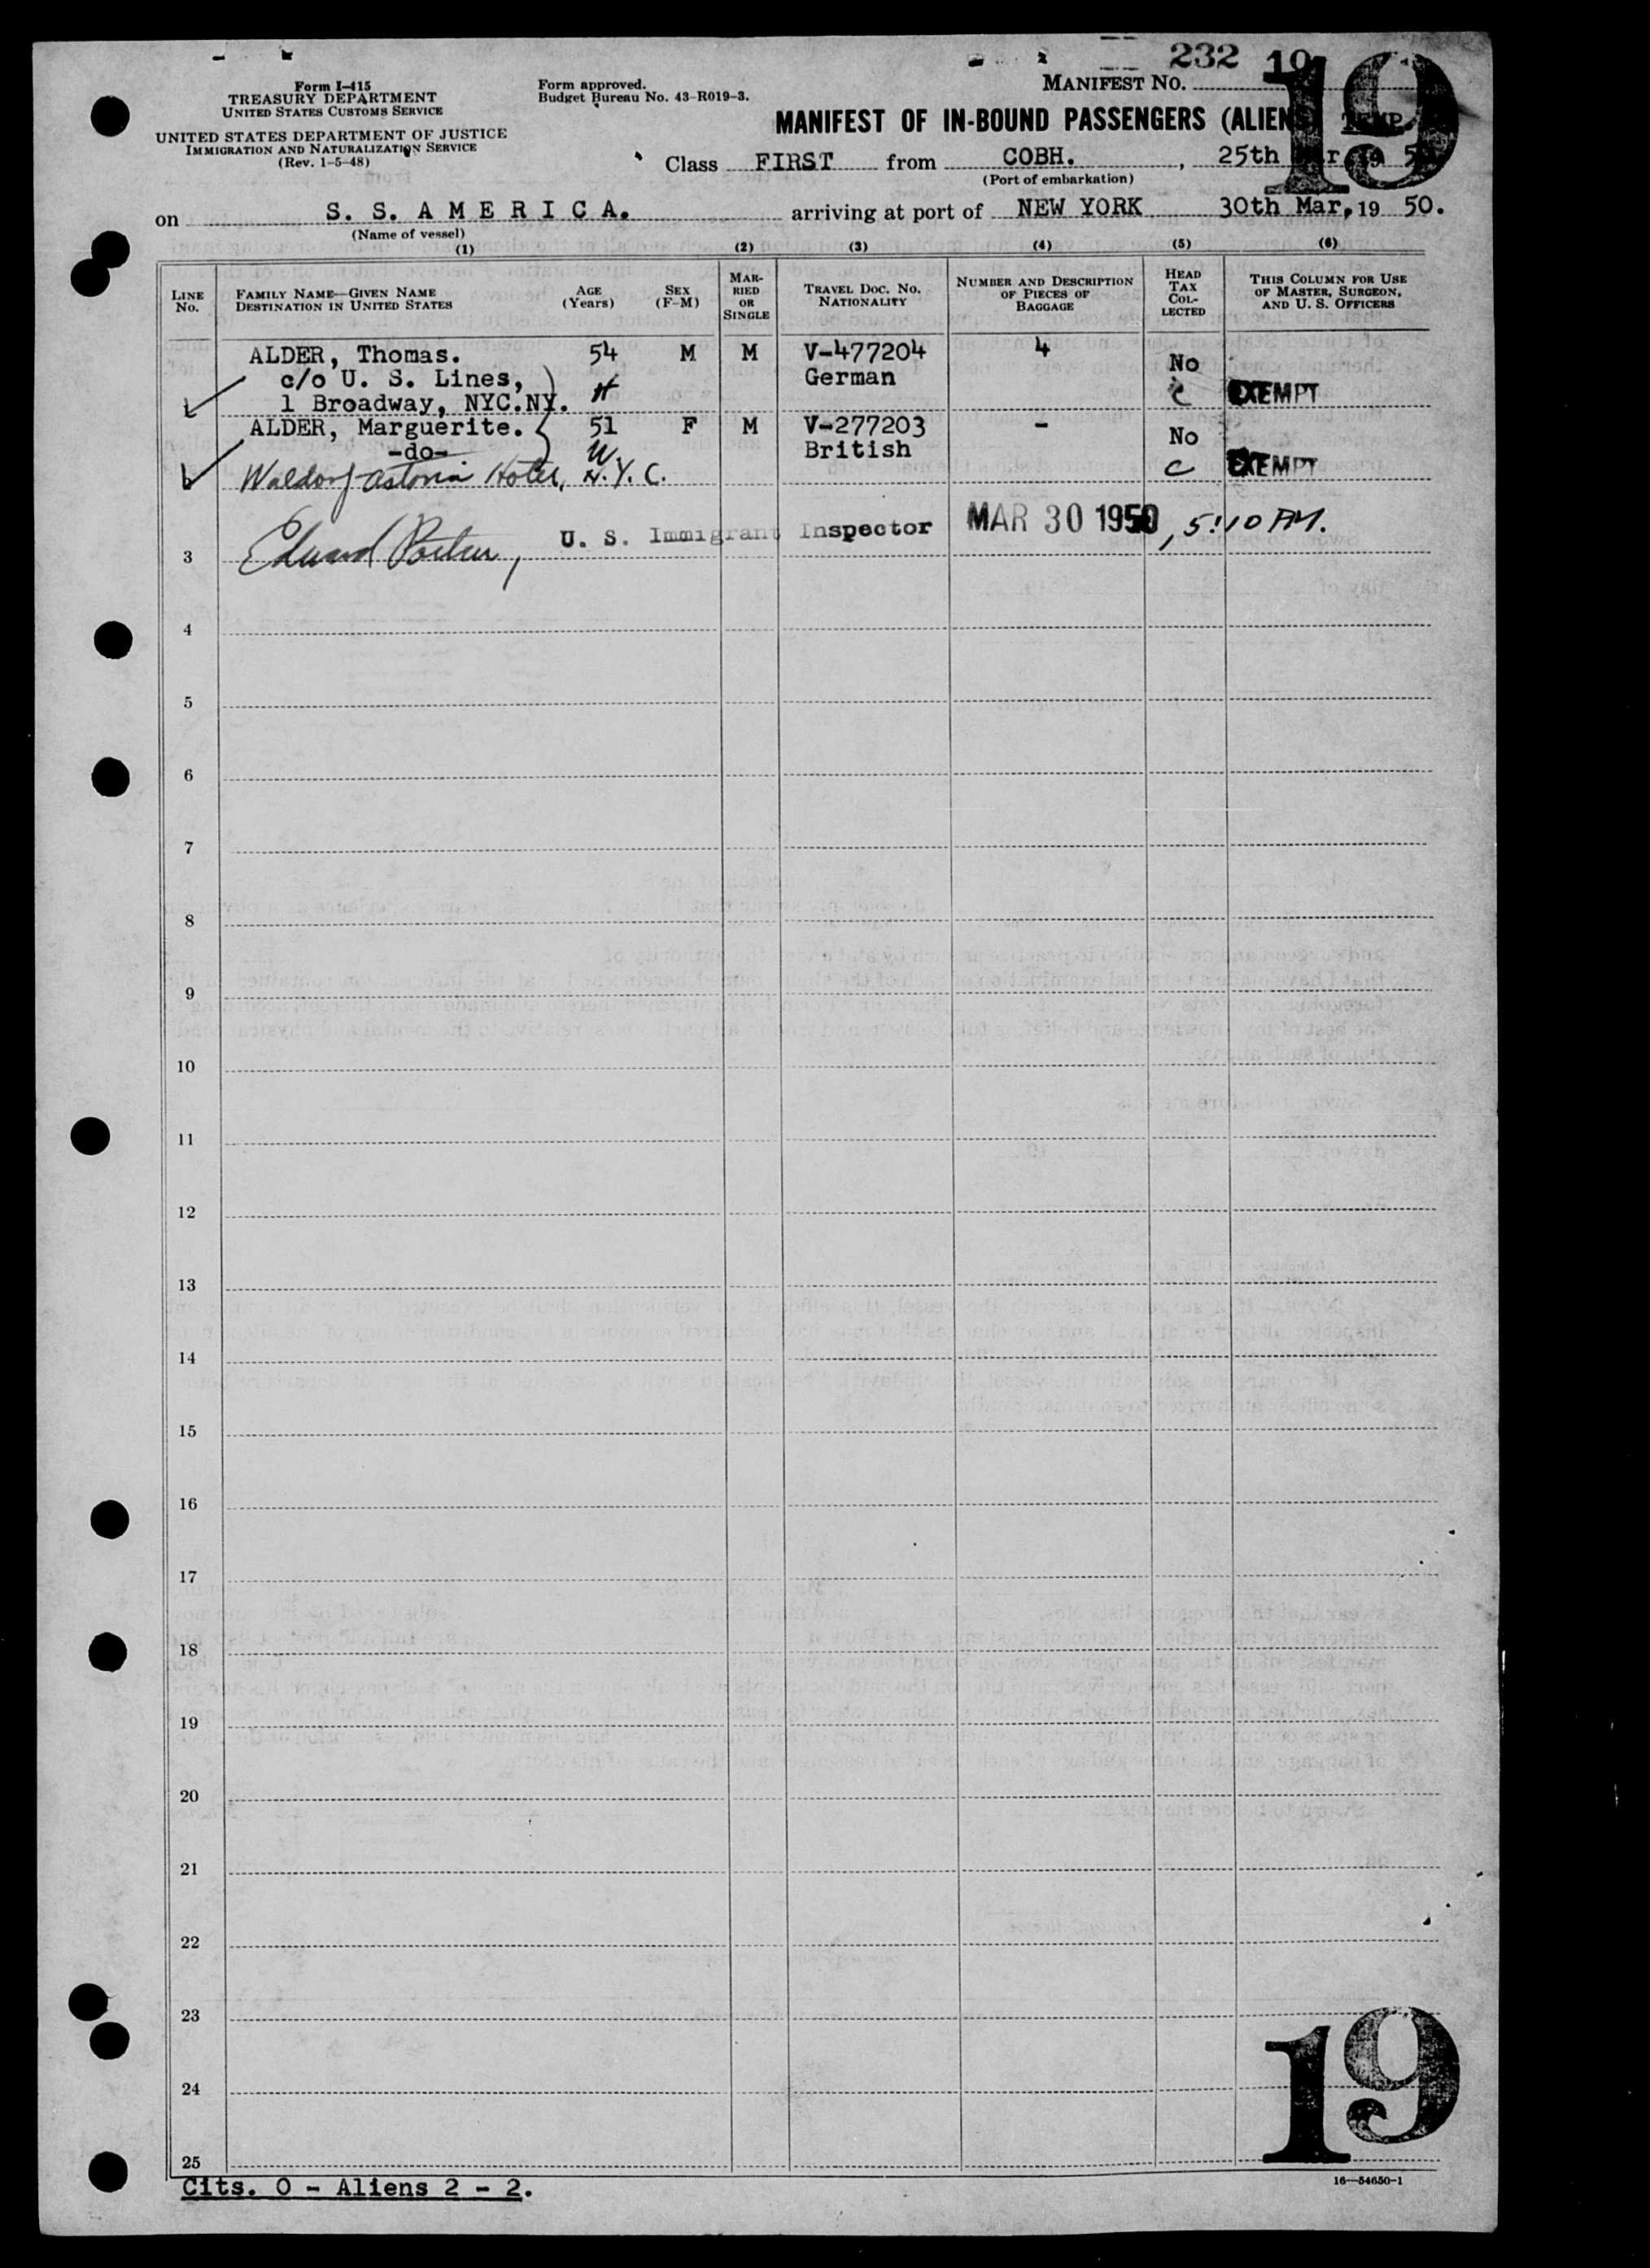 232 10
19
Form I-415
TREASURY DEPARTMENT
UNITED STATES CUSTOMS SERVICE
UNITED STATES DEPARTMENT OF JUSTICE
IMMIGRATION AND NATURALIZATION SERVICE
(Rev. 1-5-48)
Form approved.
Budget Bureau No. 43-R019-3.
MANIFEST NO.
MANIFEST OF IN-BOUND PASSENGERS (ALIENS) TEMP.
Class FIRST from COBH., 25th Mar, 19 50
(Port of embarkation)
on S. S. A M E R I C A. arriving at port of NEW YORK 30th Mar, 19 50.
(Name of vessel)
(1) (2) (3) (4) (5) (6)
LINE No. FAMILY NAME—GIVEN NAME DESTINATION IN UNITED STATES AGE (Years) SEX (F-M) MARRIED OR SINGLE TRAVEL DOC. NO. NATIONALITY NUMBER AND DESCRIPTION OF PIECES OF BAGGAGE HEAD TAX COLLECTED THIS COLUMN FOR USE OF MASTER, SURGEON, AND U. S. OFFICERS
ALDER, Thomas. 54 M M V-477204 4 No
c/o U. S. Lines, H German
1 Broadway, NYC.NY. C EXEMPT
ALDER, Marguerite. 51 F M V-277203 - No
-do- W British
Waldorf-Astoria Hotel, N.Y.C. C EXEMPT
3 Edward U. S. Immigrant Inspector MAR 30 1950, 5:10 PM.
4
5
6
7
8
9
10
11
12
13
14
15
16
17
18
19
20
21
22
23
24
25
19
Cits. 0 - Aliens 2 - 2.
16—54650-1